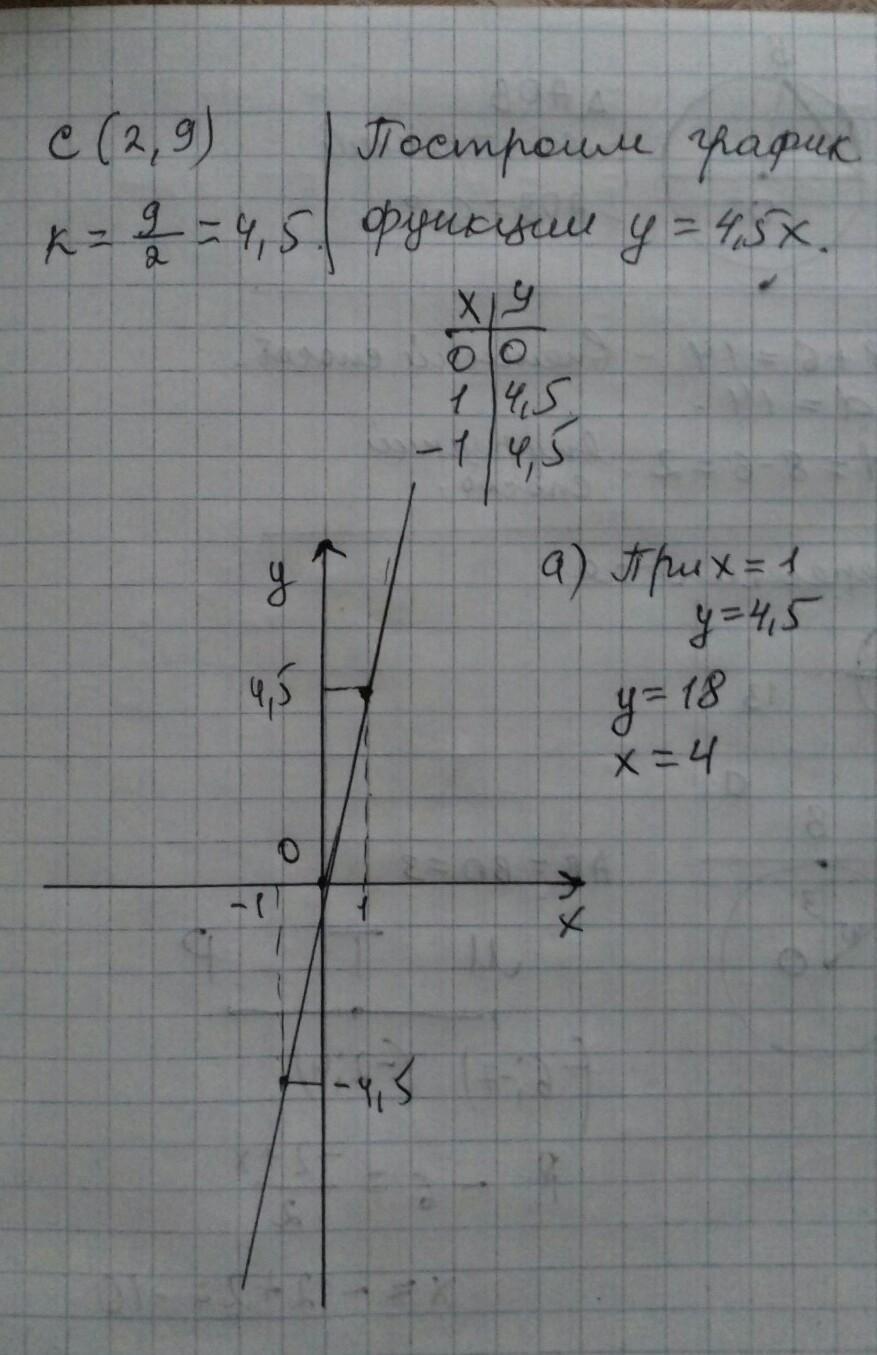 C (2, 9)
к = 9/2 = 4,5.
Построим график
функции y = 4,5x.
x | y
0 | 0
1 | 4,5
-1 | 4,5
а) При x = 1
y = 4,5
y = 18
x = 4
y
4,5
0
-1
1
x
-4,5